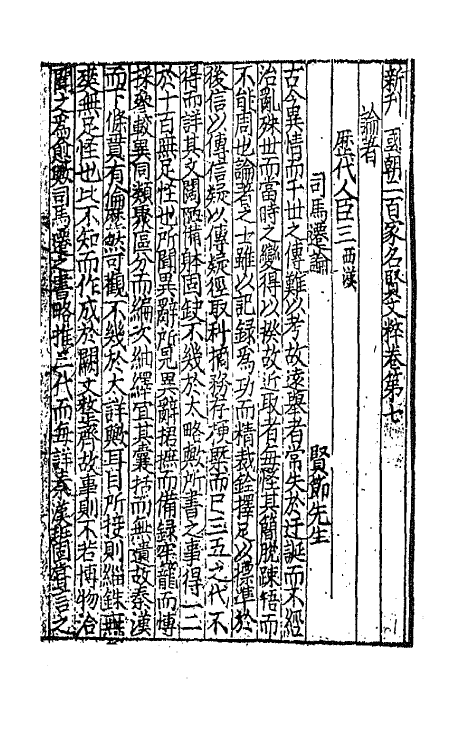 新刊國朝二百家名賢文粹卷第七
論著
歷代人臣三西漢
司馬遷論 賢節先生
古今異情而千世之傳難以考故遠舉者常失於迂誕而不經
治亂殊世而當時之變得以揆故近取者每怪其簡脫踈牾而
不能周也論著之士雖以記録為功而精裁銓擇足以標準於
後信以傳信疑以傳疑徑取科摘粉存梗槩而已三五之代不
得而詳其文闊陋備缺不幾於太略歟所書之事得一二
於十百無足怪也所聞異辭所見異辭捃摭而備録牢籠而博
採參較異同類聚區分而編次紬繹宜其囊括而無遺故秦漢
而下條貫有倫歷然可觀不幾於大詳歟耳目所接則緇銖無
爽無足怪也比不知而作成於闕文整齊故事則不若博物洽
聞之為愈歟司馬遷之書略推三代而每詳秦漢班固嘗言之